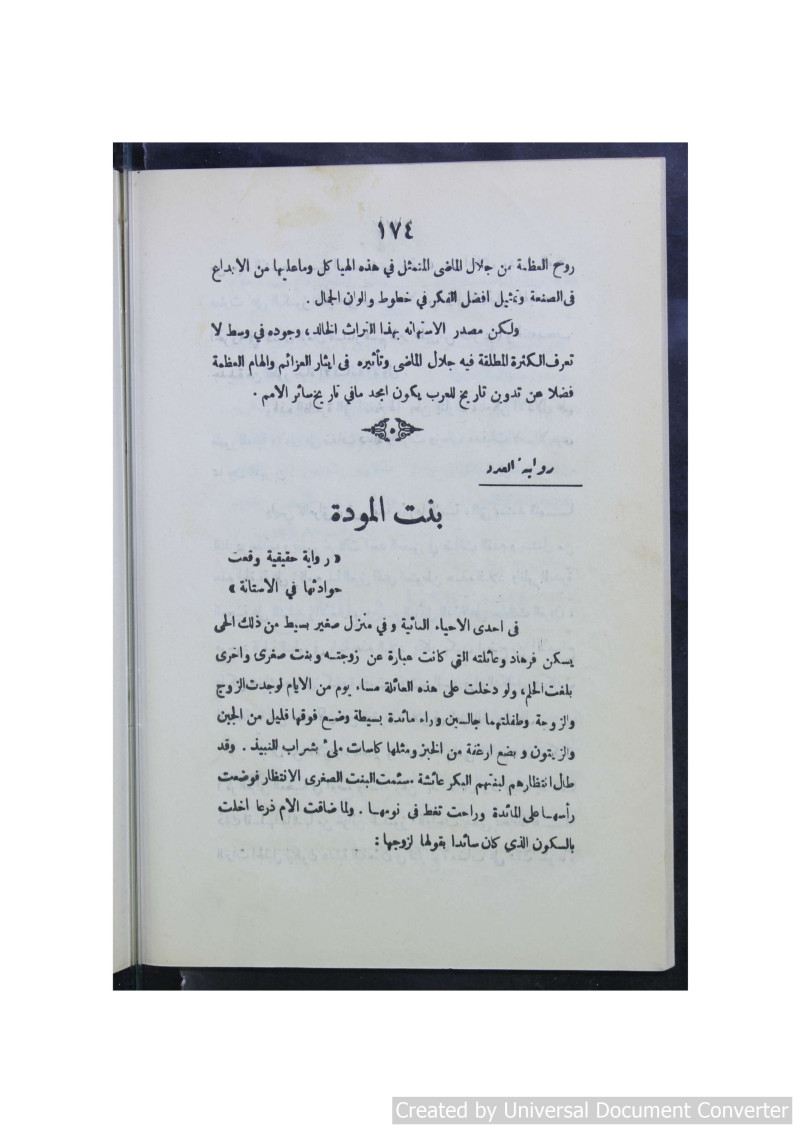 ١٧٤
روح العظمة من جلال الماضى المتمثل في هذه الهياكل وماعليها من الابداع
فى الصنعة وتمثيل افضل الفكر في خطوط والوان الجمال .
ولكن مصدر الاستهانه بهذا التراث الخالد ، وجوده في وسط لا
تعرف الكثرة المطلقة فيه جلال الماضى وتأثيره فى ايثار العزائم والهام العظمة
فضلا عن تدوين تاريخ للعرب يكون امجد مافي تاريخ سائر الامم .
رواية العدد
بنت المودة
« رواية حقيقية وقعت
حوادثها في الاستانة »
فى احدى الاحياء النائية وفي منزل صغير بسيط من ذلك الحى
يسكن فرهاد وعائلته التي كانت عبارة عن زوجته وبنت صغرى واخرى
بلغت الحلم ، ولو دخلت على هذه العائلة مساء يوم من الايام لوجدت الزوج
والزوجة وطفلتهما جالسين وراء مائدة بسيطة وضع فوقها قليل من الجبن
والزيتون و بضع ارغفة من الخبز ومثلها كاسات ملئ بشراب النبيذ . وقد
طال انتظارهم لبنتهم البكر عائشة سئمت البنت الصغرى الانتظار فوضعت
رأسها على المائدة وراحت تغط فى نومها . ولما ضاقت الام ذرعا اخلت
بالسكون الذي كان سائدا بقولها لزوجها :
Created by Universal Document Converter